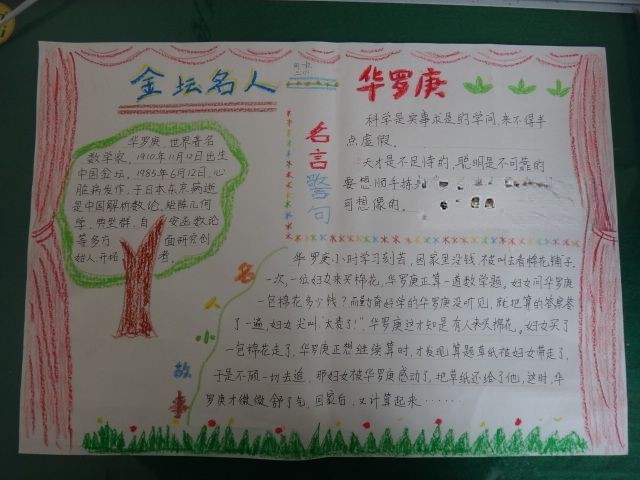 金坛名人
华罗庚
科学是实事求是的学问,来不得半
点虚假。
天才是不足恃的,聪明是不可靠的
要想顺手拣
可想像的。
名言警句
华罗庚 世界著名
数学家,1910年11月12日出生
中国金坛。1985年6月12日,心
脏病发作,于日本东京病逝
是中国解析数论、矩阵几何
学、典型群、自 安函数论
等多方 面研究创
始人开拓 者。
名人小故事
华罗庚小时学习刻苦,因家里没钱,被叫去看棉花铺子。
一次,一位妇女来买棉花,华罗庚正算一道数学题。妇女问华罗庚
一包棉花多少钱?而勤奋好学的华罗庚没听见,就把算的答案答
了一遍,妇女尖叫“太贵了!”,华罗庚这才知是有人来买棉花。妇女买了
一包棉花走了,华罗庚正想继续算时,才发现算题草纸被妇女带走了,
于是不顾一切去追,那妇女被华罗庚感动了,把草纸还给了他,这时,华
罗庚才微微舒了气,回家后,又计算起来······